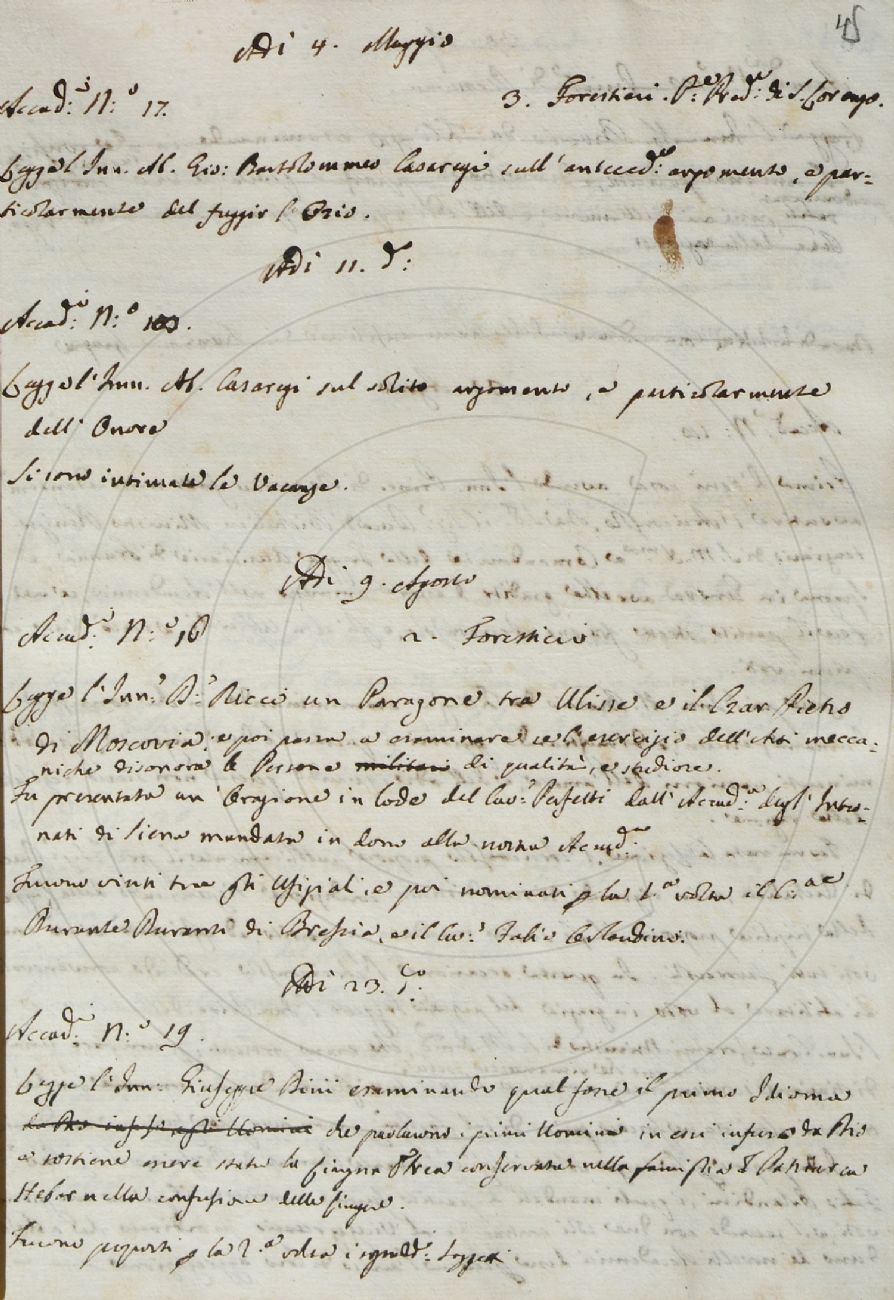 45
Adi 4. Maggio
Accad.i N.o 17.
3. Forestieri. P.e Pred.e di S. Lorenzo.
Legge l'Inn. Ab. Gio: Bartolommeo Casaregi sull'anteced.e argomento, e par=
ticolarmente del fuggir l'Ozio.
Adi 11. d.o
Accad.i N.o
Legge l'Inn. Ab. Casaregi sul solito argomento, e particolarmente
dell'Onore
Si sono intimate le Vacanze.
Adi 9. Agosto
Accad.i N.o 16
2. Forestieri
Legge l'Inn.e B.e Ricci un Paragone tra Ulisse e il Czar Pietro
di Moscovia; e poi passa a esaminare se l'esercizio dell'Arti mecca=
niche disonora le Persone militari di qualità, e studiose.
Fu presentata un'Orazione in lode del Cav.e Perfetti dall'Accad.a degl'Intro=
nati di Siena mandata in dono alla nostra Accad.a
Furono vinti tra gli Apisti, e poi nominati p la 1.a volta il
Durante Duranti di Brescia, e il Cav.e Fabio Orlandini.
Adi 23. d.o
Accad.i N.o 19.
Legge l'Inn. Giuseppe Bini esaminando qual fosse il primo Idioma
da Dio infuso agli Uomini che parlarono i primi Uomini in essi infuso da Dio
e sostiene essere stata la Lingua Ebrea conservata nella famiglia d Patriarca
Heber nella confusione delle lingue.
Furono proposti p la 2.a volta i sopradd.i Soggetti